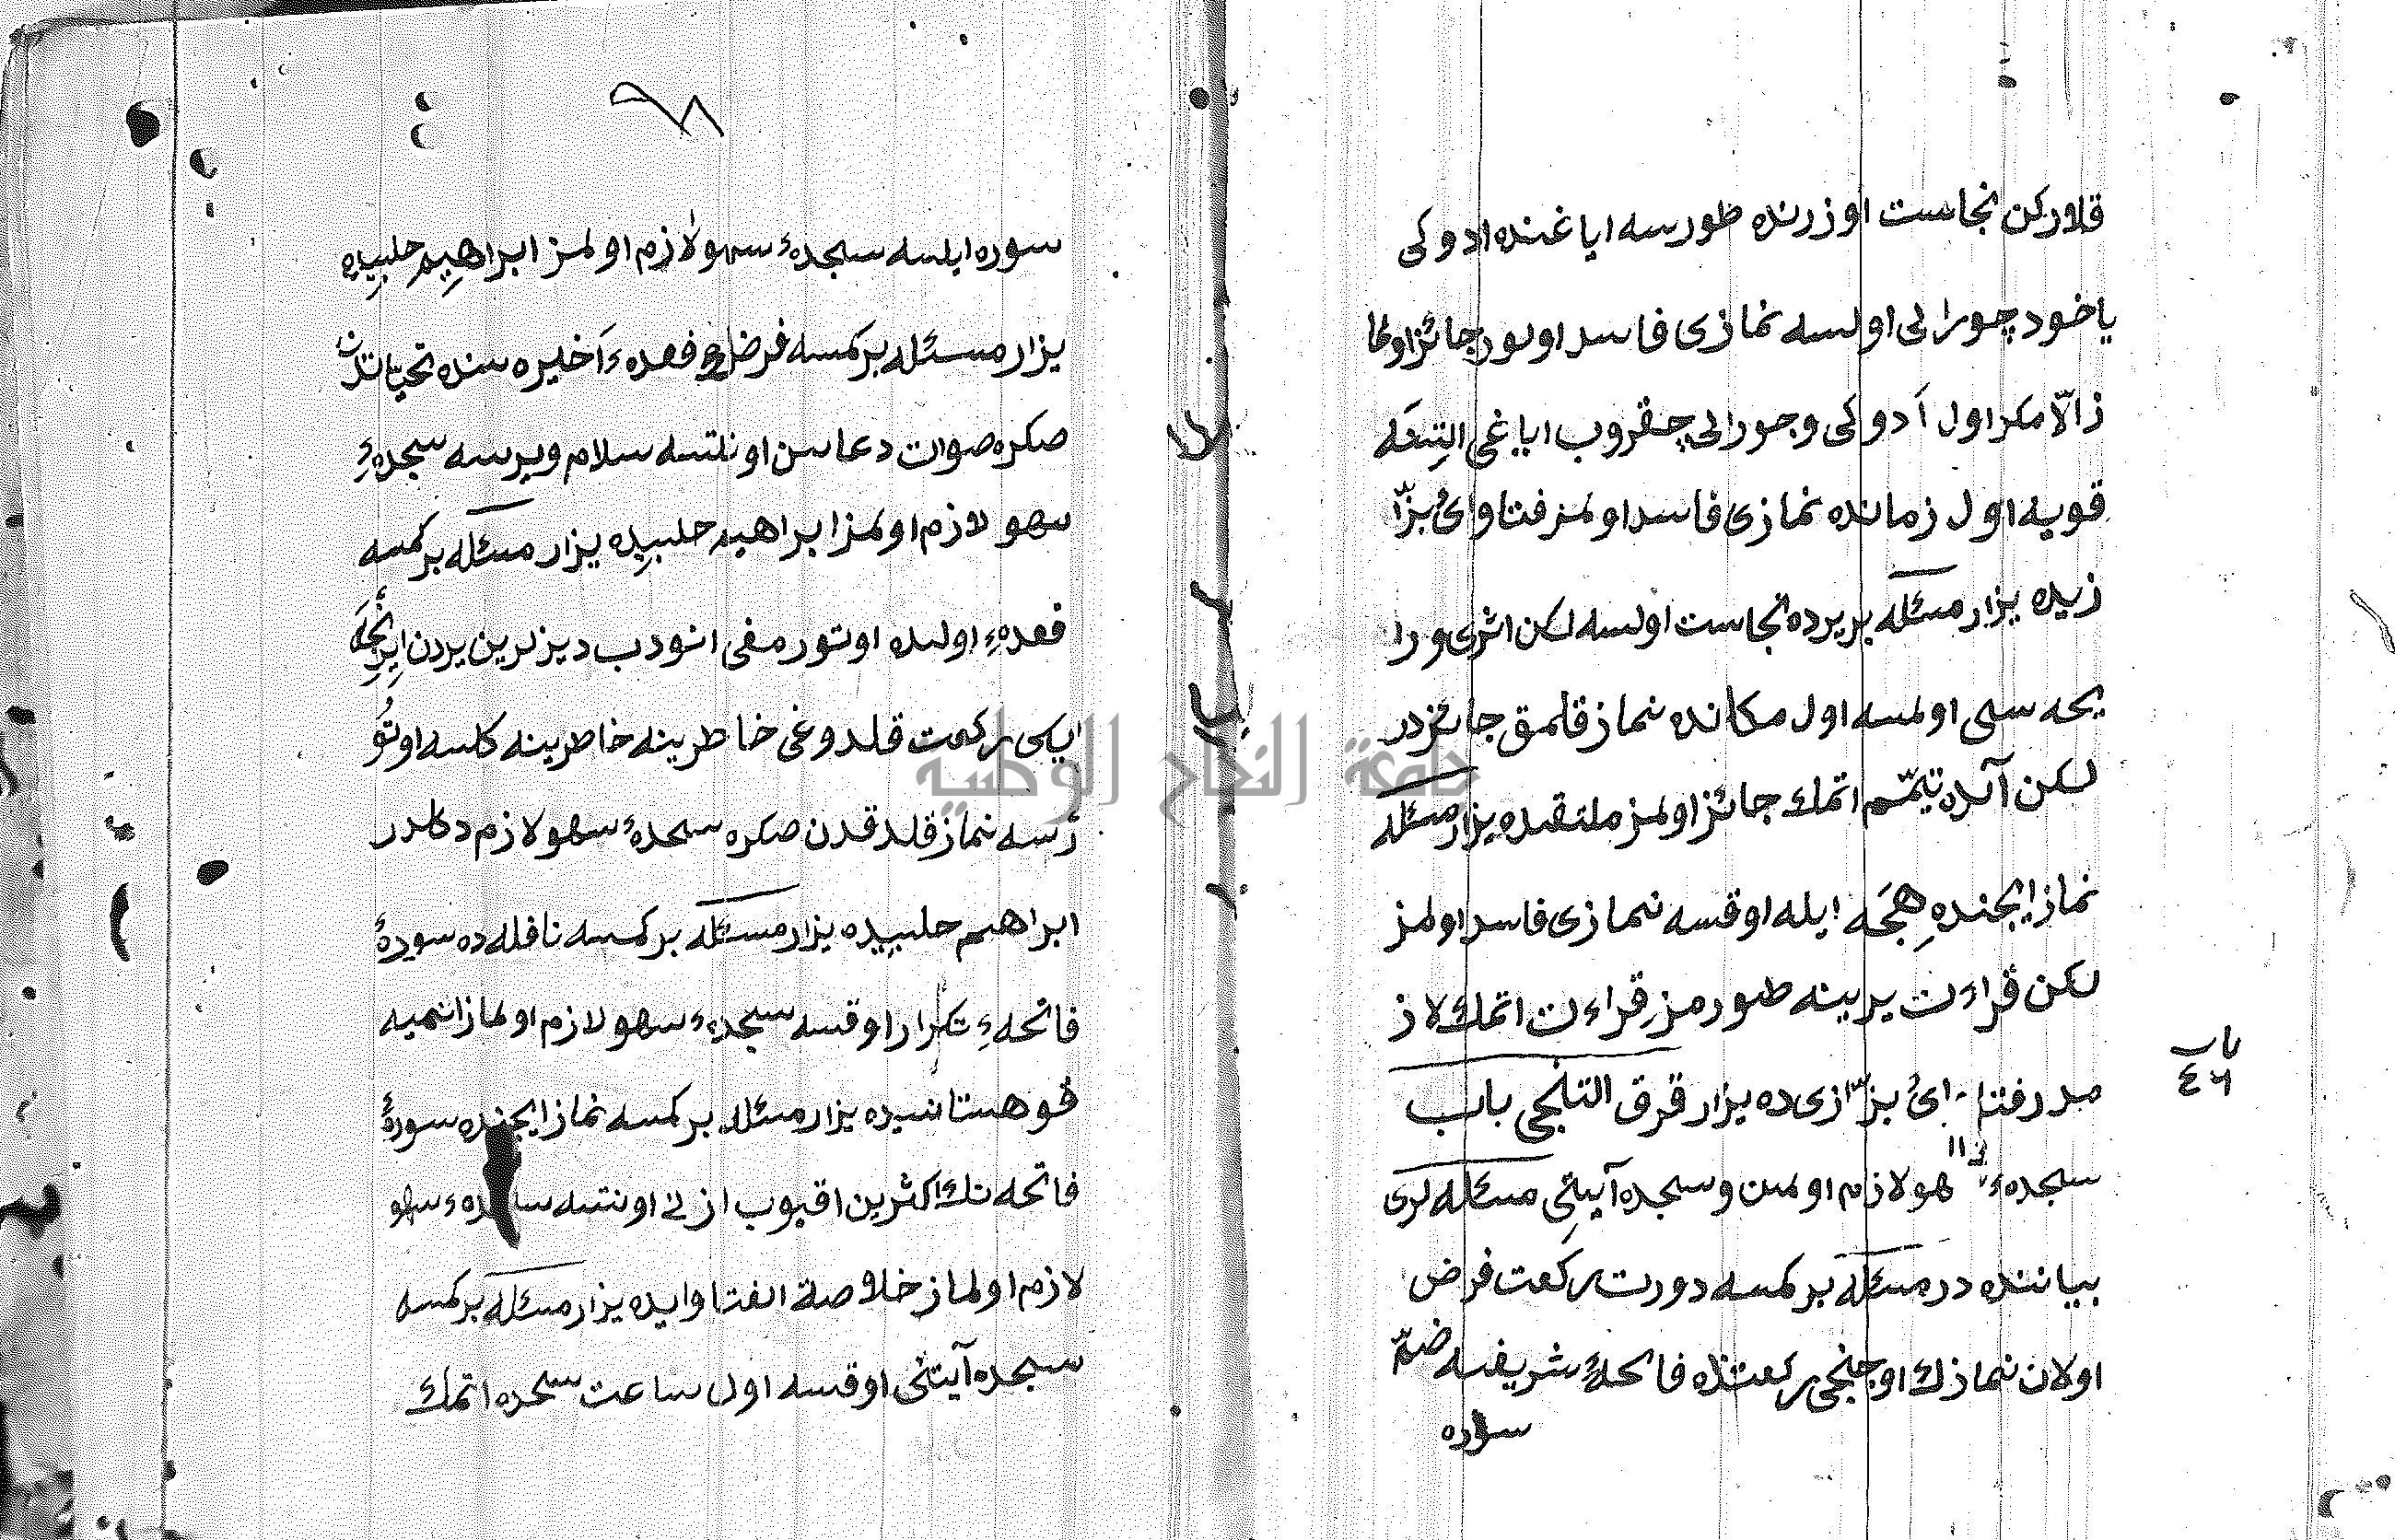 قلاوركن نجاست اوزرنده طورسه اياغنده ادوكى
ياخود چورابى اولسه نمازى فاسد اولور جائز اولما
ز الّا مكر اول اَدوكى وجورابى چقروب اياغى التِنَه
قويه اول زمانده نمازى فاسد اولمز فتاواىُ بزّا
زيده يزار مسئله بر يرده نجاست اولسه لكن اثرى ورا
يحه سى اولمسه اول مكانده نماز قلمق جائزدر
لكن آنده تيمّم اتمك جائز اولمز ملتقده يزار مسئله
نماز ايچنده هِجَه ايله اوقسه نمازى فاسد اولمز
لكن قراءت يرينه طورمز قراءت اتمك لاز
مدر فتاواىُ بزّازى ده يزار قرق التنجى باب
باب
٤٦
سجدهءِ سهو لازم اولمن وسجده آيتى مسئله لرى
بياننده در مسئله بر كمسه دورت ركعت فرض
اولان نمازك اوچنجى ركعتنده فاتحهٔ شريفه ضمّ
سوره
٦٨
سوره ايلسه سجدهءِ سهو لازم اولمز ابراهيم حلبيده
يزار مسئله بر كمسه فرضڭ قعدهءِ اَخيره سنده تحياتدن
صكره صوات دعاسن اونلتسه سلام ويرسه سجدهءِ
سهو لازم اولمز ابراهيم حلبيده يزار مسئله بر كمسه
قعدهءِ اولىده اوتورمغى انودب ديزلرين يردن ايرنجَه
ايكى ركعت قلدوغى خاطرينه خاطرينه كلسه اوتُو
رسه نماز قلدقدن صكره سجدهءِ سهو لازم دكلدر
ابراهيم حلبيده يزار مسئله بر كمسه نافله ده سورهٔ
فاتحهءِ تكرار اوقسه سجدهءِ سهو لازم اولماز انميه
قوهستانيده يزار مسئله بر كمسه نماز ايچنده سورهٔ
فاتحه نك اكثرين اقيوب ازنى اونتسه سجدهءِ سهو
لازم اولماز خلاصة الفتاوايده يزار مسئله بر كمسه
سجده آيتنى اوقسه اول ساعت سجده اتمك
جامعة النجاح الوطنية